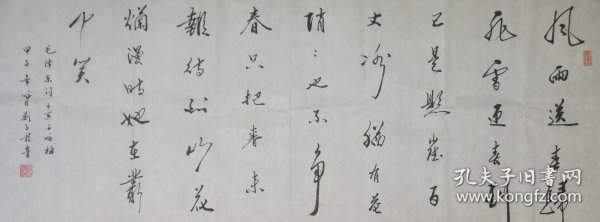 风雨送春歸
飛雪迎春到
已是懸崖百
丈冰猶有花
俏〻也不争
春只把春来
報待到山花
爛漫時她在叢
中笑
毛泽东詞卜算子咏梅
甲子
书
孔夫子旧书网
www.kongfz.com